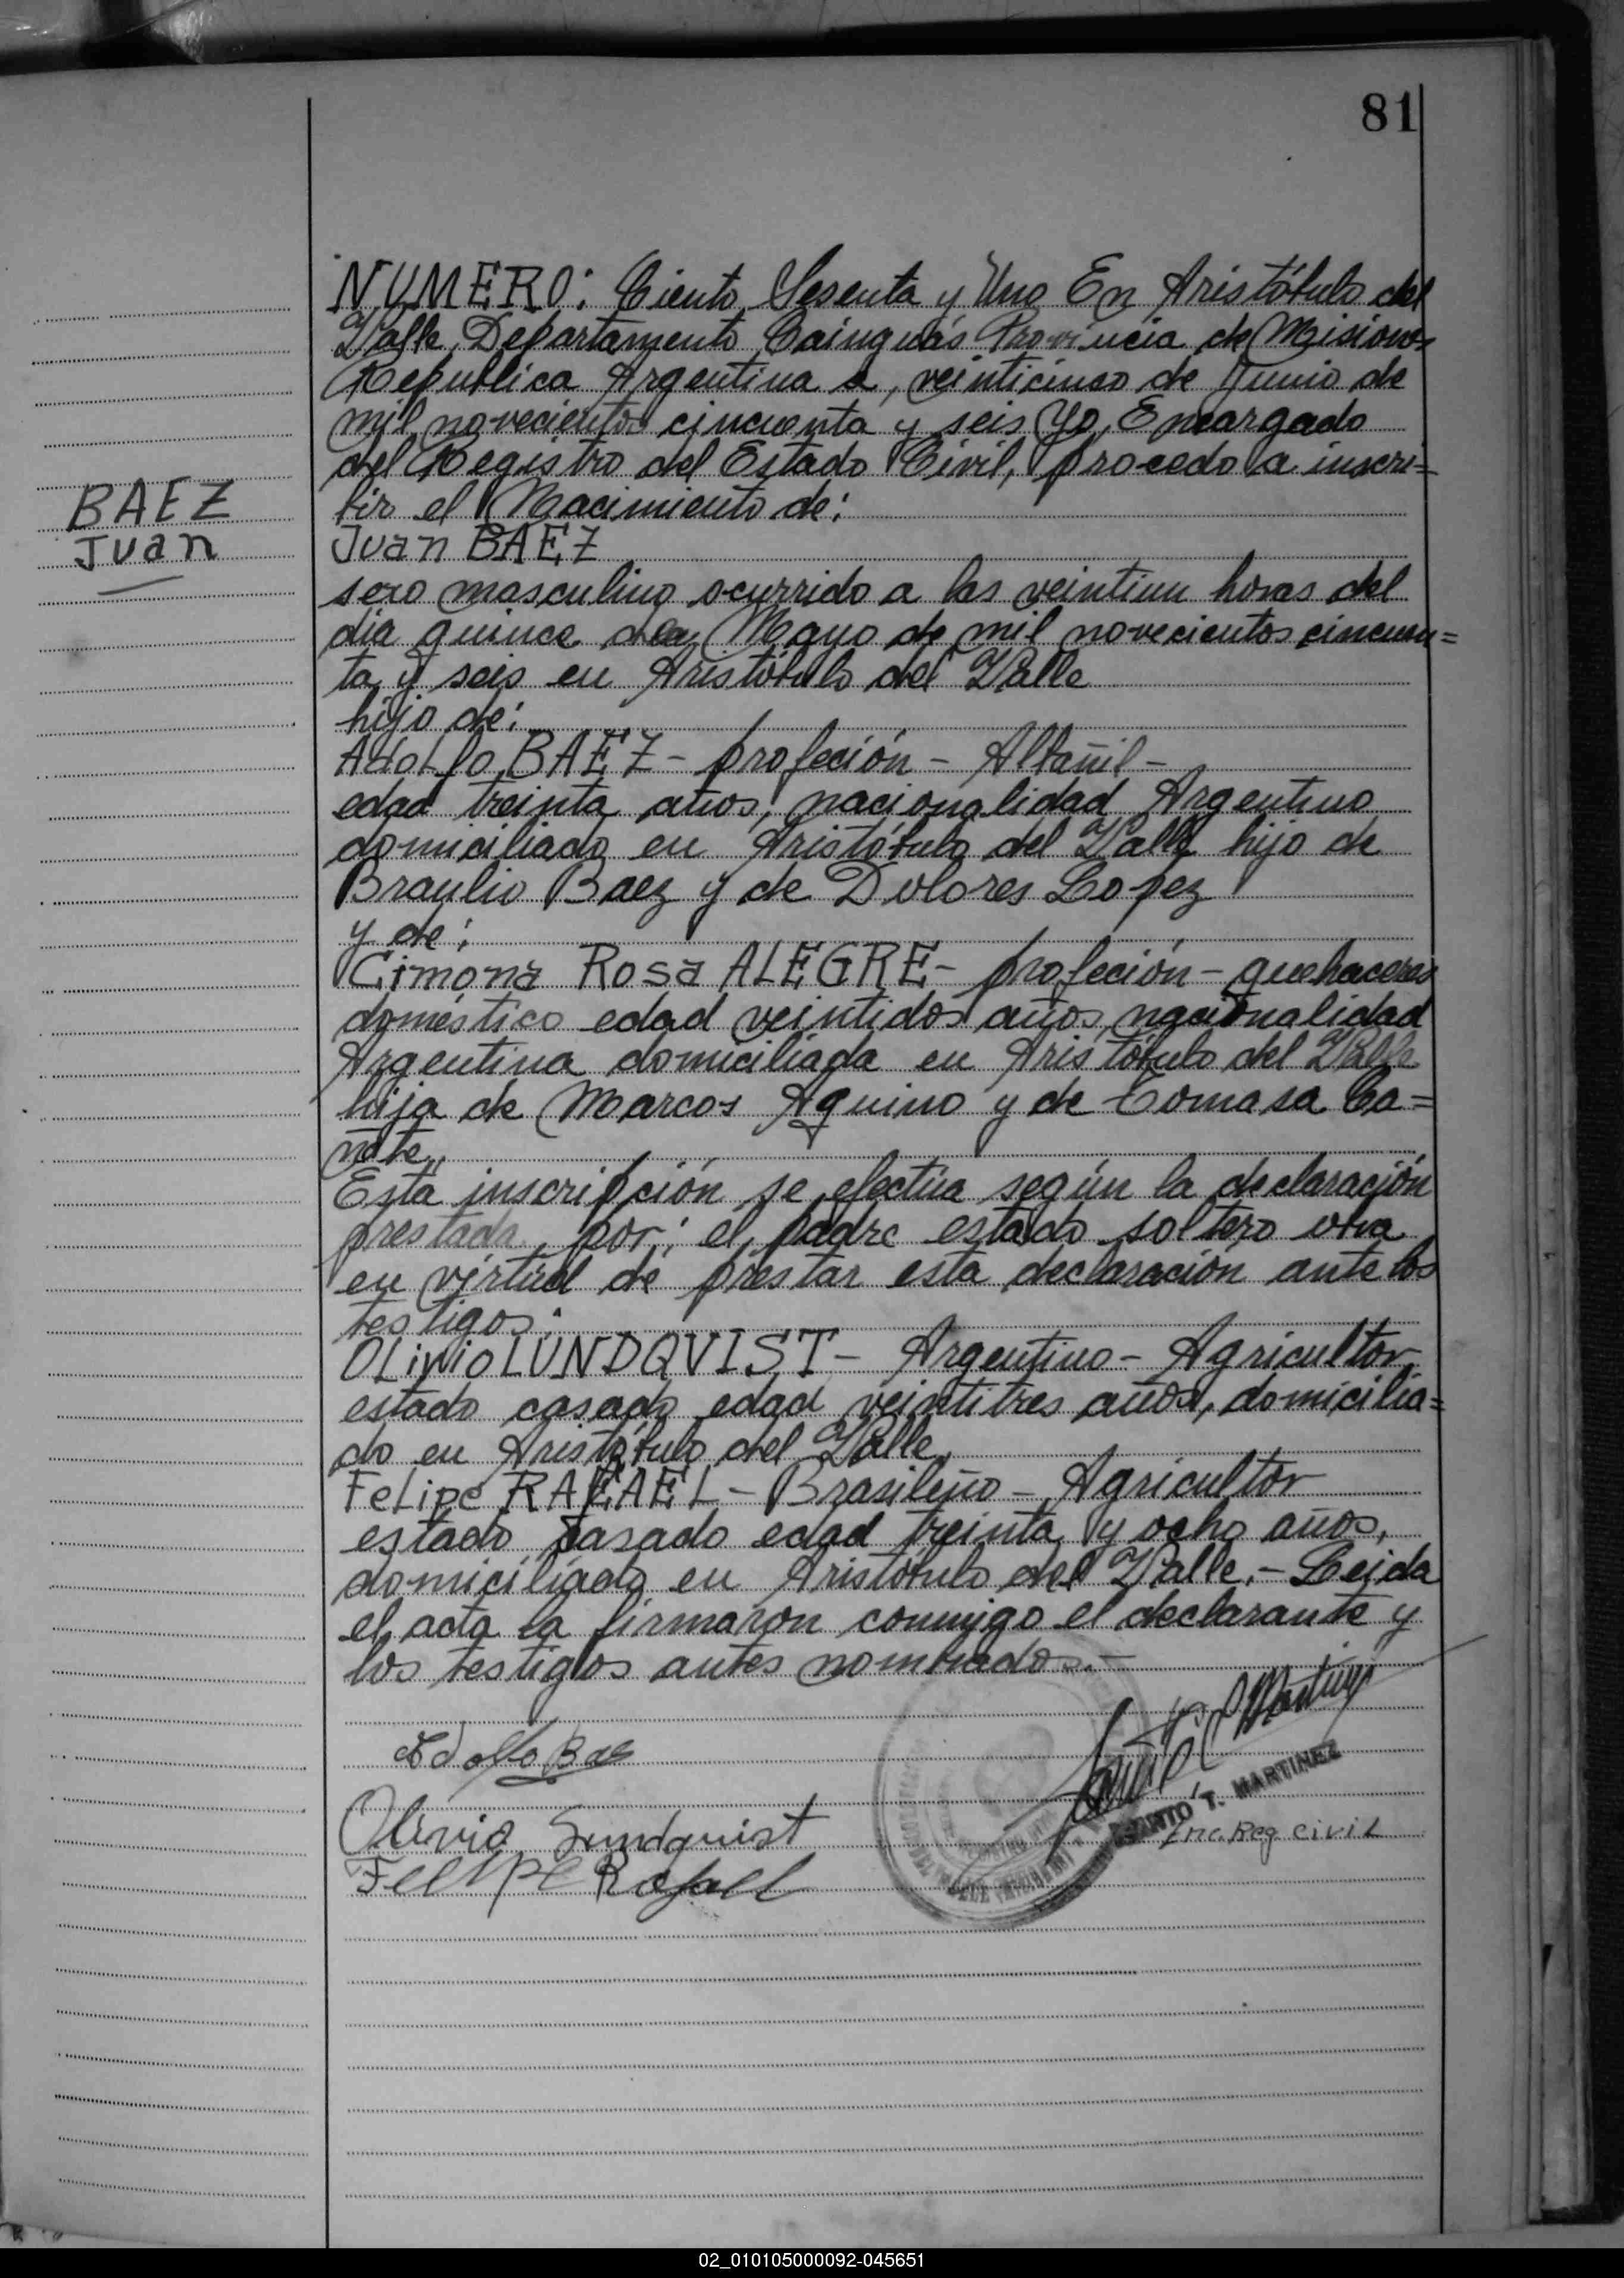 81
NUMERO: Ciento Sesenta y Uno En Aristóbulo del
Valle, Departamento Cainguás Provincia de Misiones
Republica Argentina a, veinticinco de Junio de
mil novecientos cincuenta y seis Yo, Encargado
del Registro del Estado Civil, procedo a inscri=
bir el Nacimiento de:
BAEZ
Juan
Juan BAEZ
sexo masculino ocurrido a las veintiun horas del
día quince de Mayo de mil novecientos cincuen=
ta y seis en Aristóbulo del Valle
hijo de:
AdoLfo BAEZ - profeción - Albañil -
edad treinta años, nacionalidad Argentino
domiciliado en Aristóbulo del Valle hijo de
Braulio Baez y de Dolores Lopez
y de:
Cimona Rosa ALEGRE - profeción - quehaceres
doméstico edad veintidos años, nacionalidad
Argentina domiciliada en Aristóbulo del Valle
hija de Marcos Aquino y de Tomasa Ca=
ñete.
Esta inscripción se efectúa según la declaración
prestada por: el padre estado soltero obra
en virtud de prestar esta declaración ante los
testigos:
OLivio LUNDQVIST - Argentino - Agricultor,
estado casado edad veintitres años, domicilia=
do en Aristóbulo del Valle.
FeLipe RAFAEL - Brasileño - Agricultor
estado casado edad treinta y ocho años,
domiciliado en Aristóbulo del Valle. - Leida
el acta la firmaron conmigo el declarante y
los testigos antes nombrados. -
Adolfo Baez
Olivio Lundquist
Felipe Rafael
T. MARTINEZ
Enc. Reg Civil
02_010105000092-045651